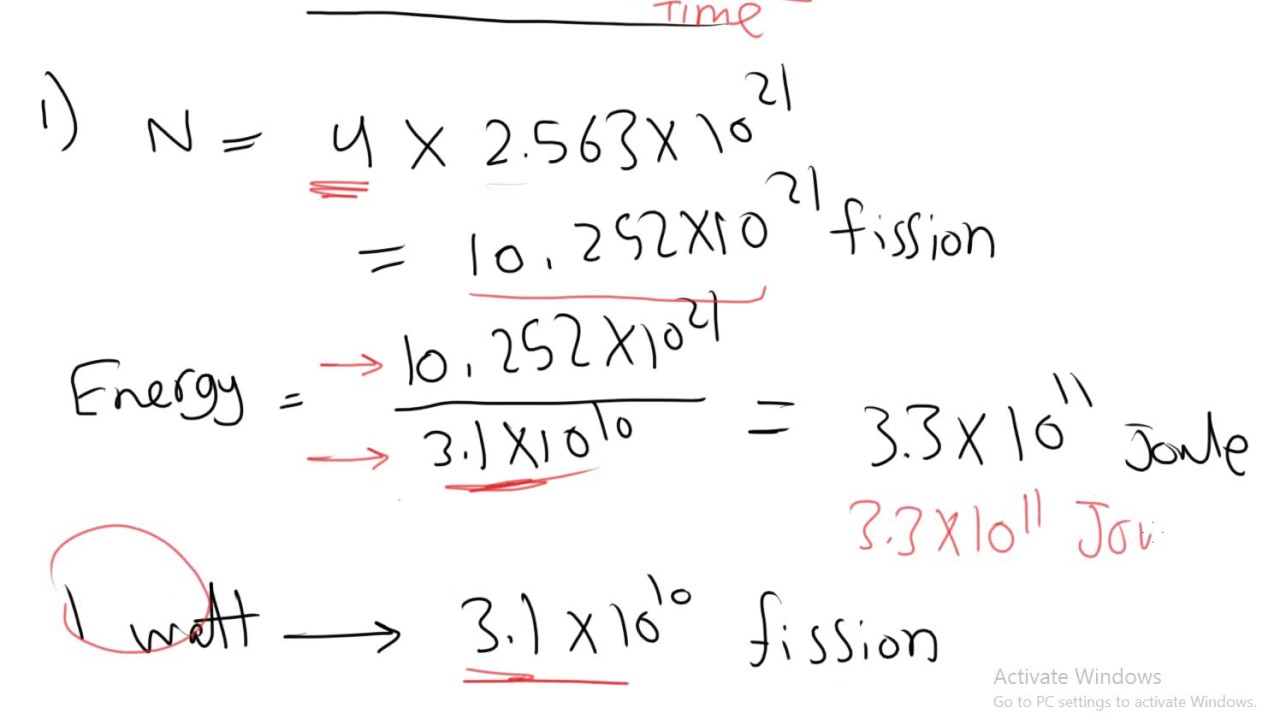 Time
1) N = 4 × 2.563 × 10²¹
= 10.252 × 10²¹ fission
Energy = → 10.252 × 10²¹ / → 3.1 × 10¹⁰ = 3.3 × 10¹¹ Joule
3.3 × 10¹¹ Jou
1 watt → 3.1 × 10¹⁰ fission
Activate Windows
Go to PC settings to activate Windows.